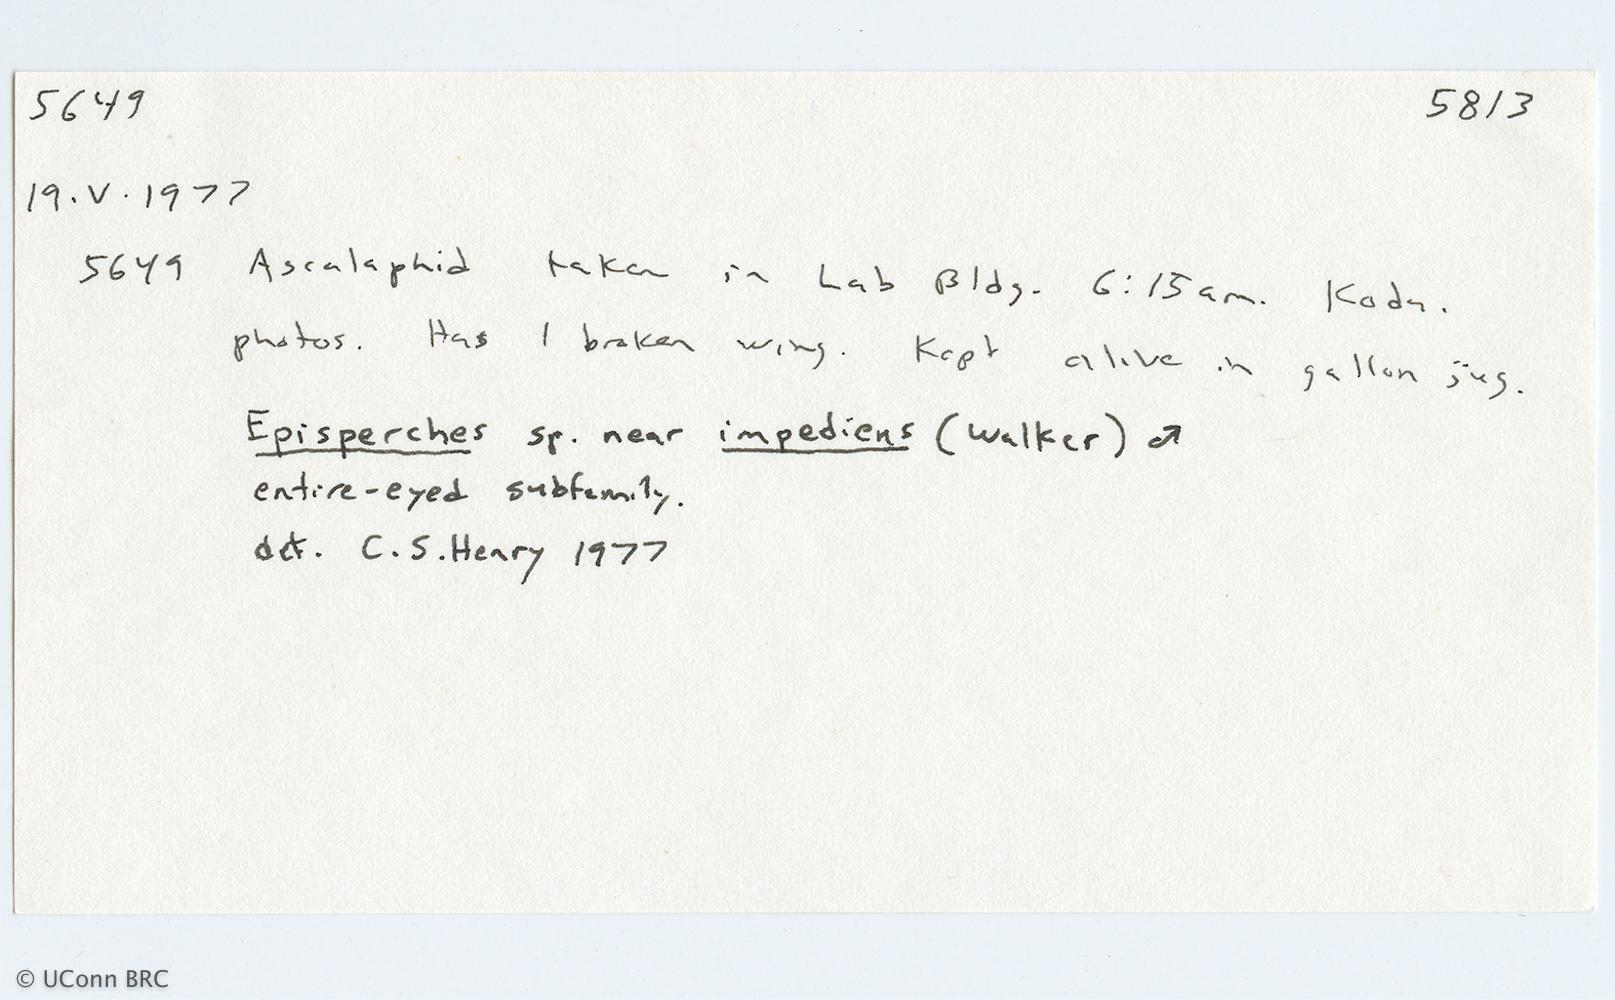 5649 5813
19.V.1977
5649 Ascalaphid taken in Lab Bldg. 6:15am. Koda.
photos. Has 1 broken wing. Kept alive in gallon jug.
Episperches sp. near impediens (Walker) ♂
entire-eyed subfamily.
det. C.S.Henry 1977
© UConn BRC